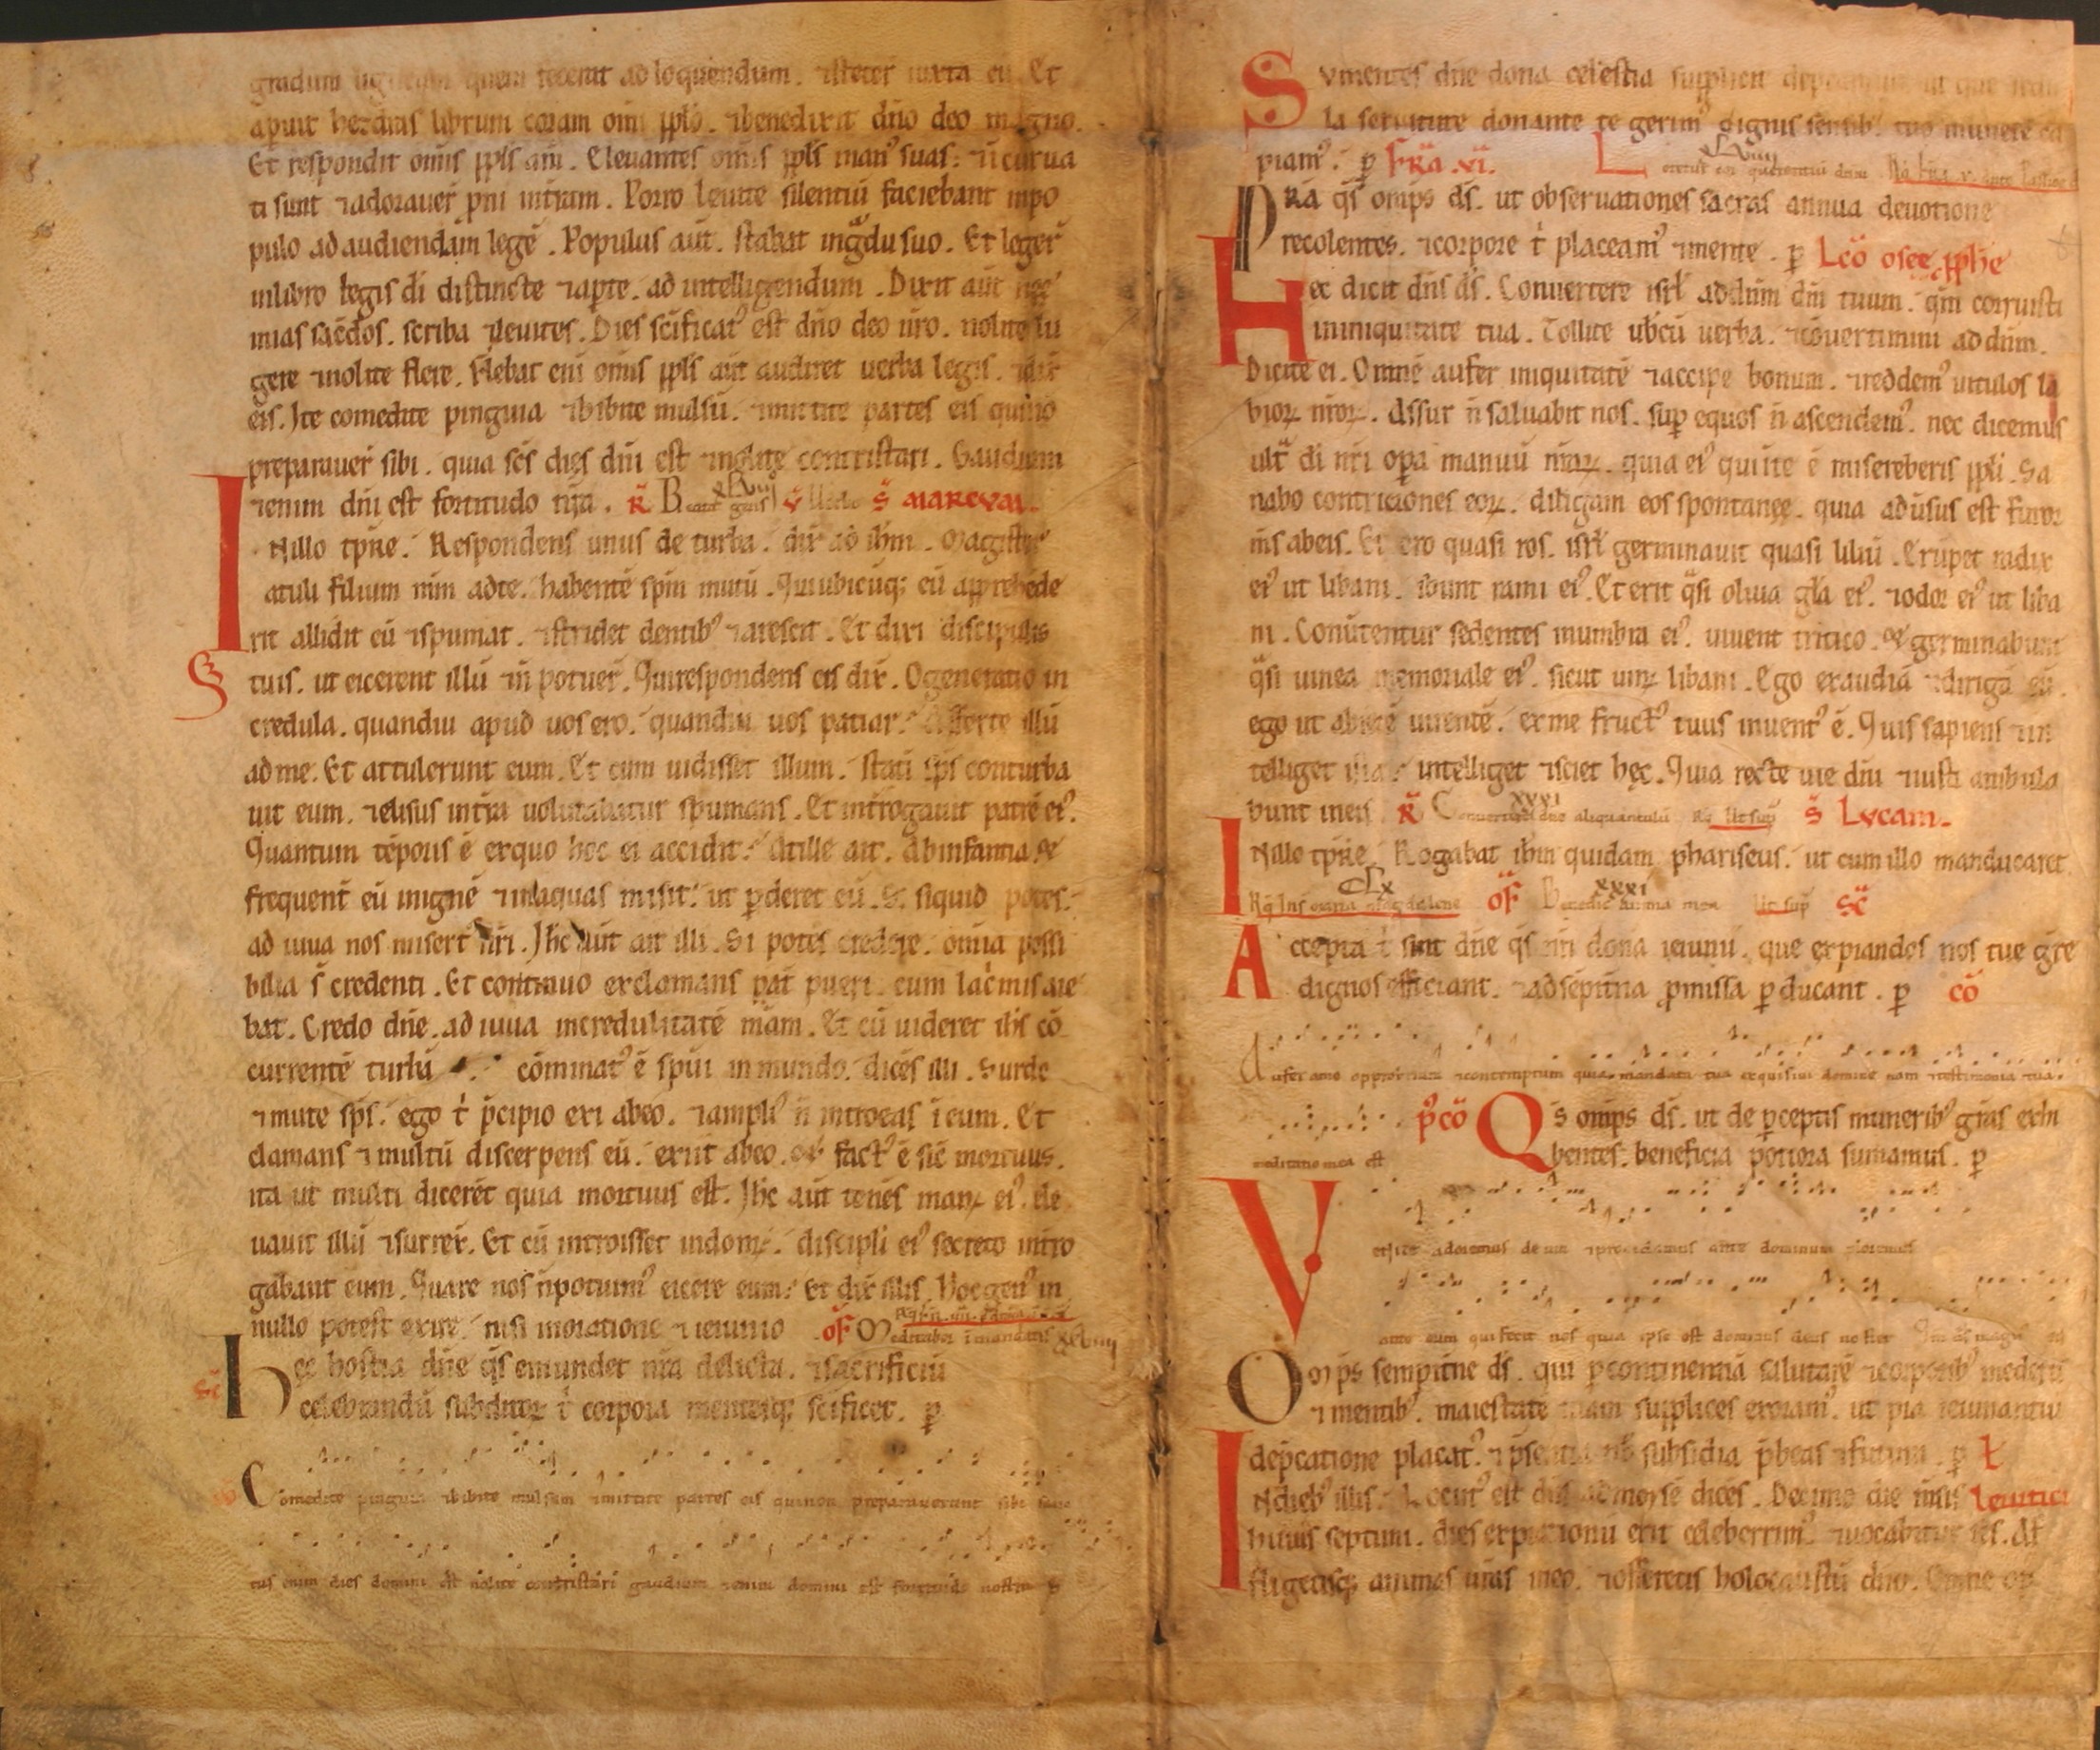 gradum ligneum quem fecerat ad loquendum. ⁊steter̄ iuxta eū Et
apuit hesdras librum coram om̄i pplo. ⁊benedixit dn̄o deo magno.
Et respondit om̄is ppls am̄. Eleuantes om̄s ppls man᾽ suas: ⁊īcurua
ti sunt ⁊adorauer̄ pni intram. Porro leuite silentiū faciebant inpo
pulo ad audiendam legē. Populus aūt. stabat ingͣdu suo. Et leger̄
inlibro legis dī distincte ⁊aperte. ad intelligendum. Dixit aūt nee
mias sac̄dos. scriba ⁊leuites. Dies sc̄ificat᾽ est dn̄o deo nr̄o. nolite lu
gere ⁊nolite flere. flebat enī om̄is ppls aūt audiret uerba legis. ⁊dix̄
eis. Ite comedite pinguia ⁊bibite mulsū. ⁊mittite partes eis qui nō
preparauer̄ sibi. quia sc̄s dies dn̄i est ⁊nolite contristari. Gaudium
⁊enim dn̄i est fortitudo nr̄a. R̄ Beata gens v̄ s̄ MARCVM.
Nillo tp̄re. Respondens unus de turba. dix̄ ad ih̄m. Magister
atuli filium mm̄ adte. habentē sp̄m mutū. Qui ubicūq; eū apprehēde
rit allidit eū ⁊spumat. ⁊stridet dentib᾽ ⁊arescit. Et dixi discipulis
tuis. ut eicerent illū ⁊n̄ potuer̄. Qui respondens eis dix̄. O generatio in
credula. quandiu apud uos ero. quandiu uos patiar. Afferte illū
ad me. Et attulerunt eum. Et cum uidisset illum. stati sp̄s conturba
uit eum. ⁊elisus intra uolutabatur spumans. Et introgauit patrē ei᾽.
Quantum tēporis ē exquo hoc ei accidit. At ille ait. Ab infantia. &
frequent̄ eū inignē ⁊inaquas misit. ut pderet eū. S; siquid potes.
ad iuua nos misert nr̄i. Ih̄c aūt ait illi. Si potes credere. om̄ia possi
bilia s̄ credenti. Et continuo exclamans pat̄ pueri. cum lac̄mis aie
bat. Credo dn̄e. ad iuua incredulitatē mām. Et cū uideret ih̄s cō
currentē turbā cōminat᾽ ē sp̄ui inmundo. dicēs illi. Surde
⁊mute sp̄s. ego t̄ p̄cipio exi abeo. ⁊ampli᾽ n̄ introeas ī eum. Et
clamans ⁊multū discerpens eū. exiit abeo. & fact᾽ ē sic̄ mortuus.
ita ut multi dicerēt quia mortuus est. Ih̄c aūt tenēs manū ei᾽. ele
uauit illū ⁊surrex̄. Et cū introisset indomū. discipli ei᾽ secreto intro
gabant eum. Quare nos n̄potuim᾽ eicere eum. Et dix̄ illis. Hoc gen᾽ in
nullo potest exire. nisi inoratione ⁊ieiunio of Meditabor ī mandatis
sc̄ Hec hostia dn̄e q̄s emundet nr̄a delicta. ⁊sacrificiū
celebrandū subditoꝝ t̄ corpora mentesq; sc̄ificet. p
Comedite pinguia ⁊bibite mulsum ⁊mittite partes eis quinon preparauerunt sibi sanc
tus enim dies domini est nolite contristari gaudium ⁊enim domini est fortitudo nostra
Sumentes dn̄e dona celestia suppliciter
la seruitute donante te gerim᾽ dignis sensib᾽ tuo munere ca
piam᾽. p FR̄A. VI. Letetur cor querentiū dnm
PRA q̄s omp̄s ds̄. ut obseruationes sacras annua deuotione
recolentes. ⁊corpore t̄ placeam᾽ ⁊mente. p Lc̄o osee pphe
Hec dicit dn̄s ds̄. Conuertere isrl̄ addn̄m dm̄ tuum. qm̄ corruisti
in iniquitate tua. Tollite ubīcū uerba. ⁊cōuertimini ad dn̄m.
Dicite ei. Omnē aufer iniquitatē ⁊accipe bonum. ⁊reddem᾽ uitulos la
bioꝝ nr̄oꝝ. Assur n̄ saluabit nos. sup equos n̄ ascendem᾽. nec dicemus
ultͣ di nr̄i opa manuū nr̄aꝝ. quia ei᾽ qui īte ē misereberis ppli. Sa
nabo contriciones eoꝝ. diligam eos spontanee. quia adūsus est furor
ms̄ abeis. Et ero quasi ros. isrl̄ germinauit quasi liliū. Erūpet radix
ei᾽ ut libani. ibunt rami ei᾽. Et erit qͣsi oliua glā ei᾽. ⁊odor ei᾽ ut liba
ni. Conūtentur sedentes inumbra ei᾽. uiuent tritico. & germinabunt
qͣsi uinea memoriale ei᾽. sicut uinū libani. Ego exaudiā ⁊dirigā eū.
ego ut abietē uirentē. exme fruct᾽ tuus inuent᾽ ē. Quis sapiens ⁊in
telliget ista. intelliget ⁊sciet hec. Quia recte uie dn̄i ⁊iusti ambula
bunt ineis R̄ Conuertere dn̄e aliquantulū XXVI s̄ LVCAM.
INillo tp̄re. Rogabat ihm quidam phariseus. ut cum illo manducaret
Rq̄ Inf Maria magdalene CLX of Benedic anima mea XXXI ut sup sc̄
Accepta t̄ sint dn̄e q̄s nr̄i dona ieiunii. que expiandos nos tue gr̄e
dignos efficiant. ⁊adsēpit̄na pmissa pducant. p cō
Aufer ame opprobrium ⁊contemptum quia mandata tua exquisiui domine nam ⁊testimonia tua.
meditatio mea est
pc̄o Qs̄ omp̄s ds̄. ut de pceptis munerib᾽ gr̄as exhi
bentes. beneficia potiora sumamus. p
Venite adoremus deum ⁊procidamus ante dominum ploremus
ante eum qui fecit nos quia ipse est dominus deus noster
Omp̄s sempit̄ne ds̄. qui pcontinentiā salutarē ⁊corporib᾽ mederis
⁊mentib᾽. maiestatē tuam supplices exoram᾽. ut pia ieiunantiū
dep̄catione placat᾽. ⁊p̄sentia nob̄ subsidia p̄beas ⁊futura. p L
INdieb᾽ illis. Locut᾽ est dn̄s ad moysē dicēs. Decimo die m̄sis Leuitici
huius septimi. dies expiationū erit celeberrim᾽ ⁊uocabitur sc̄s. Af
fligetisq; animas ur̄as ineo. ⁊offeretis holocaustū dn̄o. Omne op